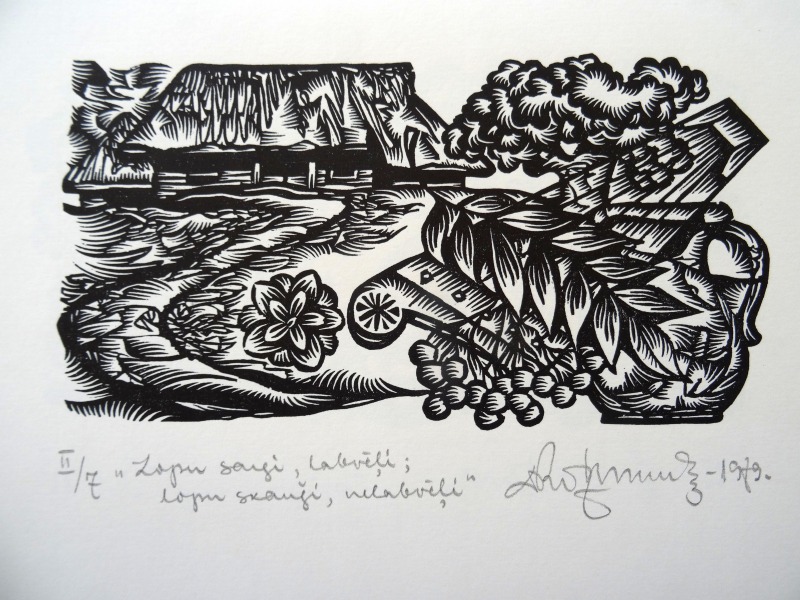 II/7 „Lopu sargi, labvēļi;
lopu skauģi, nelabvēļi"
-1979.